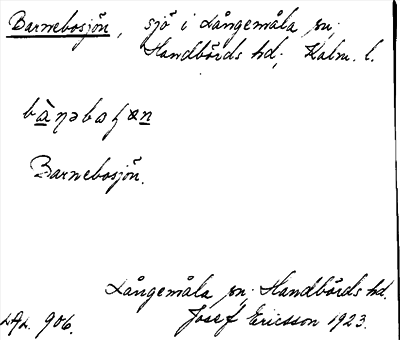 Barnebosjön, sjö i Långemåla sn;
Handbörds hd; Kalm. l.
Barnebosjön.
Långemåla sn; Handbörds hd.
LAL. 906. Josef Ericsson 1923.